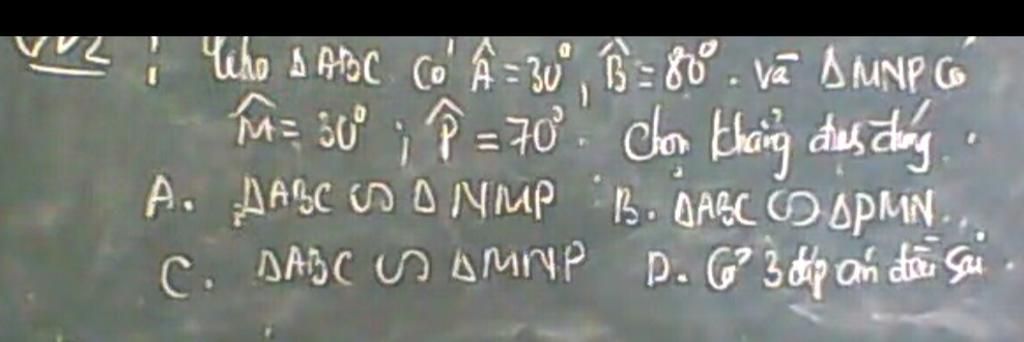 VD2 : Cho ΔABC có Â = 30°, B̂ = 80°. và ΔMNP có
M̂ = 30° ; P̂ = 70°. Chọn khẳng định đúng.
A. ΔABC ∽ ΔNMP B. ΔABC ∽ ΔPMN.
C. ΔABC ∽ ΔMNP D. Cả 3 đáp án đều sai.